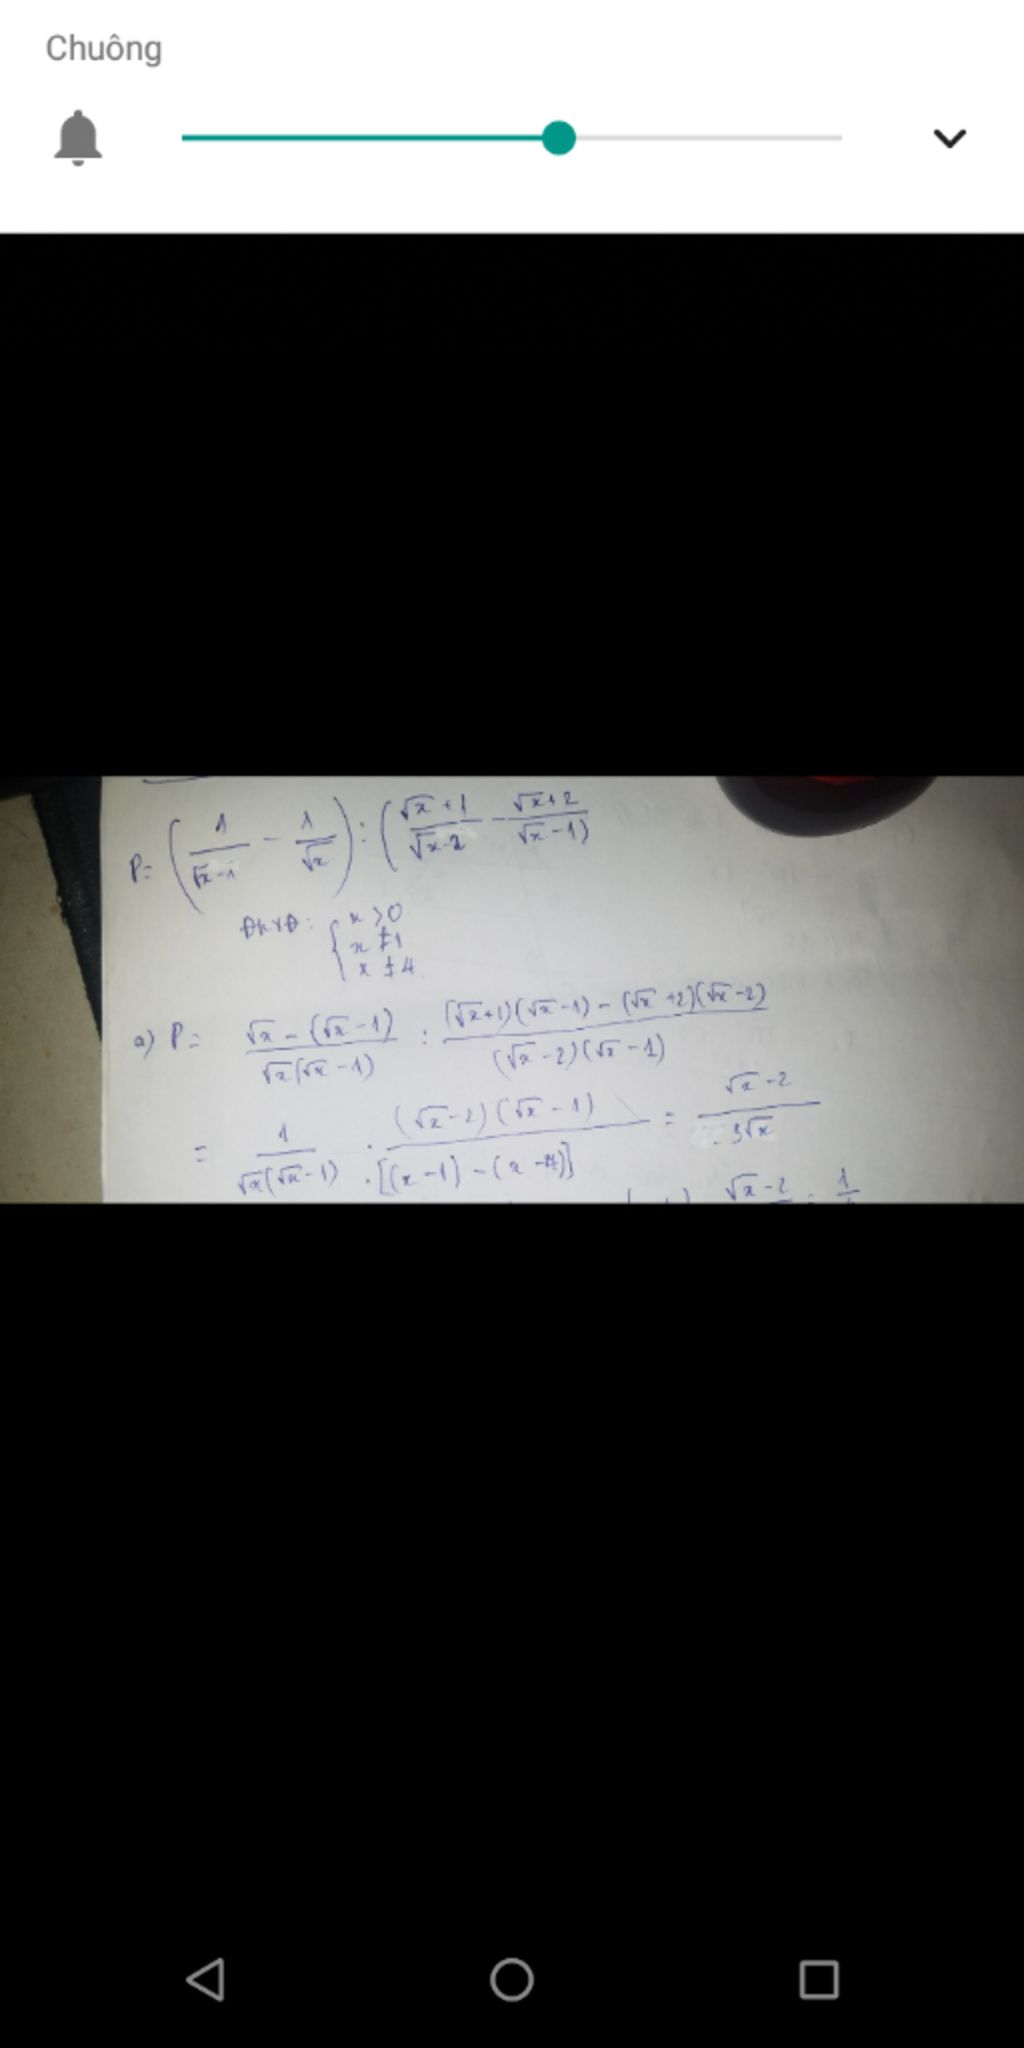 Chuông
P = (1/(√x-1) - 1/√x) : ((√x+1)/(√x-2) - (√x+2)/(√x-1))
ĐKXĐ: { x > 0
x ≠ 1
x ≠ 4
a) P = (√x - (√x-1))/(√x(√x-1)) : ((√x+1)(√x-1) - (√x+2)(√x-2))/((√x-2)(√x-1))
= 1/(√x(√x-1)) . ((√x-2)(√x-1))/[(x-1)-(x-4)] = (√x-2)/(3√x)
√x-2 1